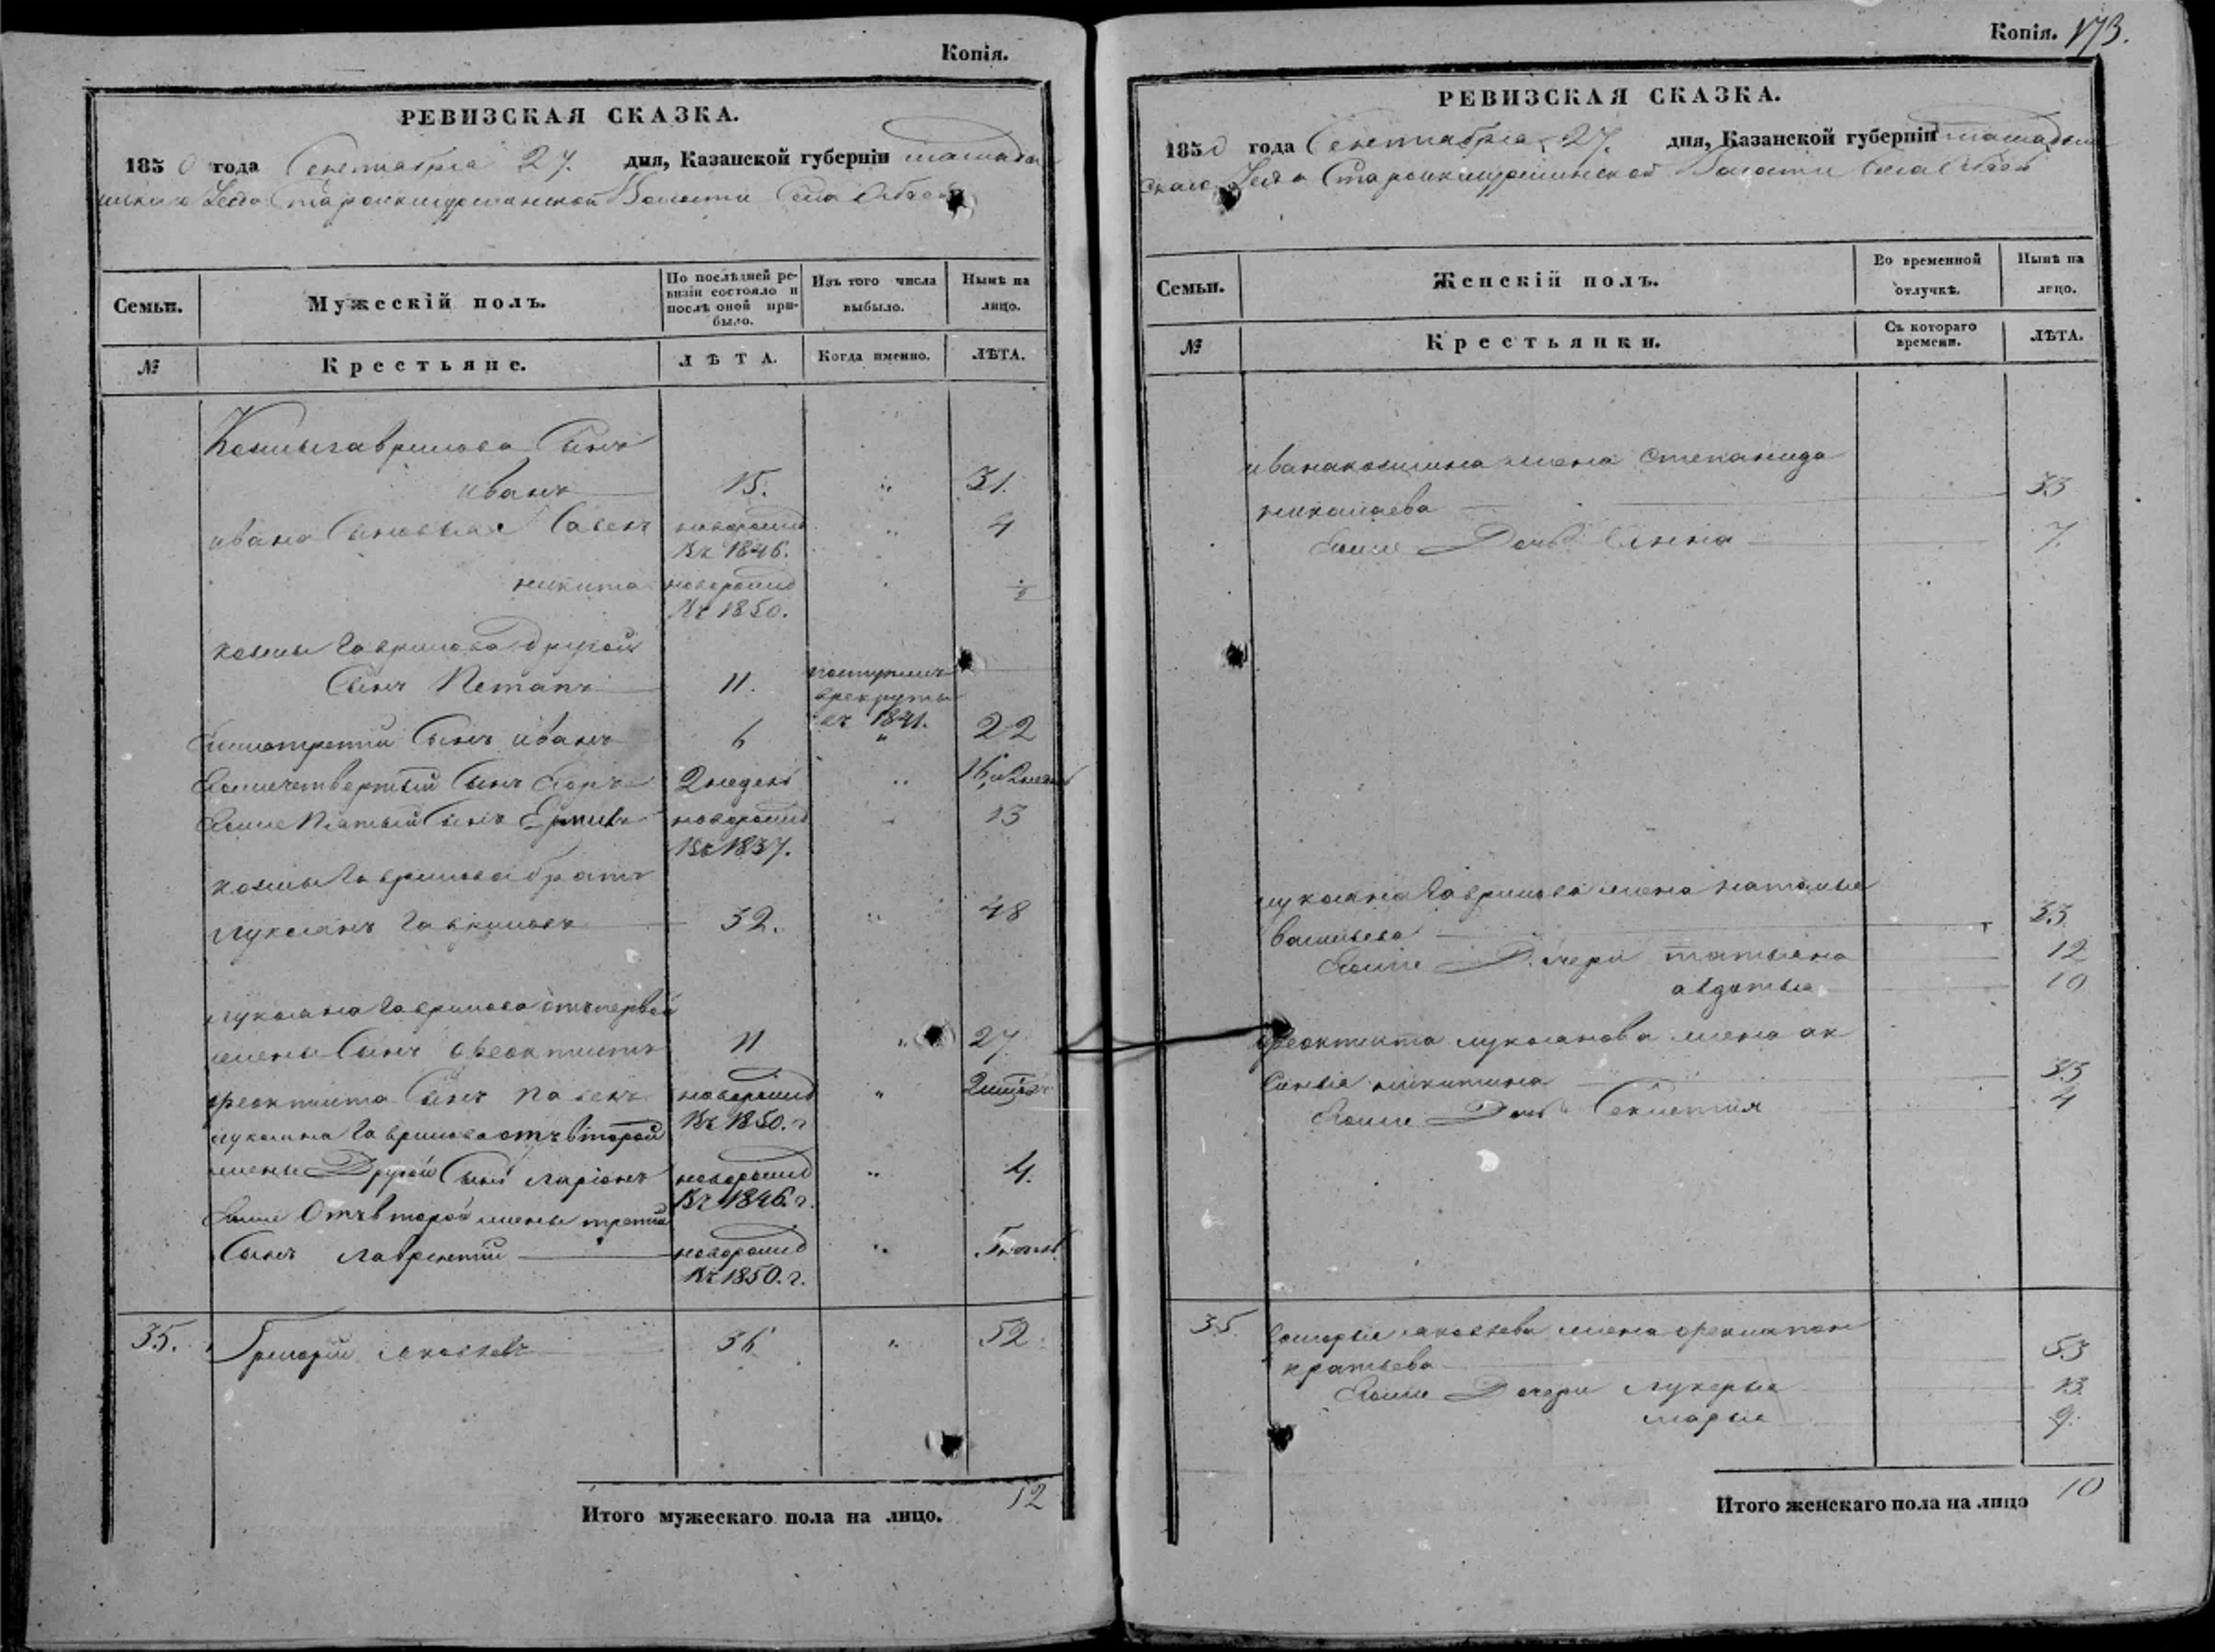 Копія.
РЕВИЗСКАЯ СКАЗКА.
1850 года Сентября 27. дня, Казанской губерніи
Волости Села
Семьи.
Мужескій полъ.
По послѣдней ре-
визіи состояло и
послѣ оной при-
было.
Изъ того числа
выбыло.
Нынѣ на
лицо.
№
Крестьяне.
ЛѢТА.
Когда именно.
ЛѢТА.
Козмы Гаврилова Сынъ
Иванъ 15. " 31.
Ивана Сыновья Савелъ новорожд " 4
въ 1846.
Никита новорожд " ½
въ 1850.
Козмы Гаврилова другой
Сынъ Потапъ 11. поступилъ
в рекруты
въ 1841.
Ево же третий Сынъ Иванъ 6 " 22
Ево же четвертый Сынъ 2 недель " 16 и 2 недель
Ево же Пятый Сынъ новорожд " 13
въ 1837.
Козмы Гаврилова братъ
Лукоянъ Гавриловъ 32. " 48
Лукояна Гаврилова отъ первой
жены Сынъ Феоктистъ 11 " 27
Феоктиста Сынъ новорожд "
въ 1850. г
Лукояна Гаврилова отъ второй
жены Другой Сынъ Ларіонъ новорожд " 4.
въ 1846. г.
Ево же Отъ второй жены третий
Сынъ Лаврентий новорожд "
въ 1850. г.
35. Григорий Яковлевъ 36 " 52
Итого мужескаго пола на лицо. 12
Копія. 173.
РЕВИЗСКАЯ СКАЗКА.
1850 года Сентября 27. дня, Казанской губерніи
Волости Села
Семьи.
Женскій полъ.
Во временной
отлучкѣ.
Нынѣ на
лицо.
№
Крестьянки.
Съ котораго
времени.
ЛѢТА.
Ивана Козмина жена Степанида
Николаева 33
Ево же Дочь Анна 7.
Лукояна Гаврилова жена Наталья
Васильева 33
Ево же Дочери Татьяна 12
Авдотья 10
Феоктиста Лукоянова жена Ак
синья Никитина 35
Ево же Дочь 4
35. Григорья Яковлева жена Фекла Пон
кратьева 53
Ево же Дочери Лукерья 13.
Марья 9.
Итого женскаго пола на лицо 10